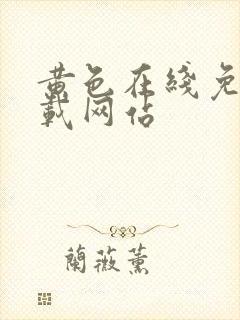 黄色在线免
载网站
蘭薇薰